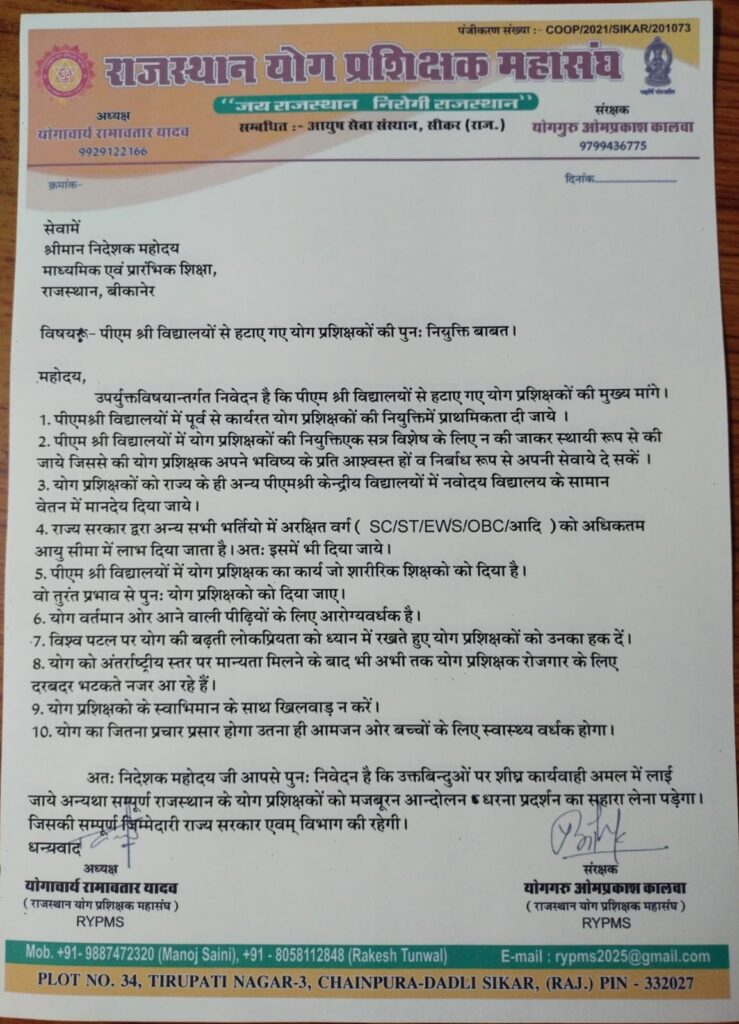 पंजीकरण संख्या :- COOP/2021/SIKAR/201073
राजस्थान योग प्रशिक्षक महासंघ
"जय राजस्थान निरोगी राजस्थान"
सम्बधित :- आयुष सेवा संस्थान, सीकर (राज.)
अध्यक्ष
योगाचार्य रामावतार यादव
9929122166
महर्षि पतंजलि
संरक्षक
योगगुरु ओमप्रकाश कालवा
9799436775
क्रमांक-
दिनांक
सेवामें
श्रीमान निदेशक महोदय
माध्यमिक एवं प्रारंभिक शिक्षा,
राजस्थान, बीकानेर
विषयरू- पीएम श्री विद्यालयों से हटाए गए योग प्रशिक्षकों की पुनः नियुक्ति बाबत।
महोदय,
उपर्युक्तविषयान्तर्गत निवेदन है कि पीएम श्री विद्यालयों से हटाए गए योग प्रशिक्षकों की मुख्य मांगे।
1. पीएमश्री विद्यालयों में पूर्व से कार्यरत योग प्रशिक्षकों की नियुक्तिमें प्राथमिकता दी जाये ।
2. पीएम श्री विद्यालयों में योग प्रशिक्षकों की नियुक्तिएक सत्र विशेष के लिए न की जाकर स्थायी रूप से की
जाये जिससे की योग प्रशिक्षक अपने भविष्य के प्रति आश्वस्त हों व निर्बाध रूप से अपनी सेवाये दे सकें ।
3. योग प्रशिक्षकों को राज्य के ही अन्य पीएमश्री केन्द्रीय विद्यालयों में नवोदय विद्यालय के सामान
वेतन में मानदेय दिया जाये।
4. राज्य सरकार द्वरा अन्य सभी भर्तियो में अरक्षित वर्ग ( SC/ST/EWS/OBC/आदि ) को अधिकतम
आयु सीमा में लाभ दिया जाता है। अतः इसमें भी दिया जाये।
5. पीएम श्री विद्यालयों में योग प्रशिक्षक का कार्य जो शारीरिक शिक्षको को दिया है।
वो तुरंत प्रभाव से पुनः योग प्रशिक्षको को दिया जाए।
6. योग वर्तमान ओर आने वाली पीढ़ियों के लिए आरोग्यवर्धक है।
7. विश्व पटल पर योग की बढ़ती लोकप्रियता को ध्यान में रखते हुए योग प्रशिक्षकों को उनका हक दें।
8. योग को अंतर्राष्ट्रीय स्तर पर मान्यता मिलने के बाद भी अभी तक योग प्रशिक्षक रोजगार के लिए
दरबदर भटकते नजर आ रहे हैं।
9. योग प्रशिक्षको के स्वाभिमान के साथ खिलवाड़ न करें।
10. योग का जितना प्रचार प्रसार होगा उतना ही आमजन ओर बच्चों के लिए स्वास्थ्य वर्धक होगा।
अतः निदेशक महोदय जी आपसे पुनः निवेदन है कि उक्तबिन्दुओं पर शीघ्र कार्यवाही अमल में लाई
जाये अन्यथा सम्पूर्ण राजस्थान के योग प्रशिक्षकों को मजबूरन आन्दोलन धरना प्रदर्शन का सहारा लेना पड़ेगा।
जिसकी सम्पूर्ण जिम्मेदारी राज्य सरकार एवम् विभाग की रहेगी।
धन्यवाद
अध्यक्ष
योगाचार्य रामावतार यादव
( राजस्थान योग प्रशिक्षक महासंघ )
RYPMS
संरक्षक
योगगरु ओमप्रकाश कालवा
( राजस्थान योग प्रशिक्षक महासंघ )
RYPMS
Mob. +91- 9887472320 (Manoj Saini), +91 - 8058112848 (Rakesh Tunwal) E-mail : rypms2025@gmail.com
PLOT NO. 34, TIRUPATI NAGAR-3, CHAINPURA-DADLI SIKAR, (RAJ.) PIN - 332027